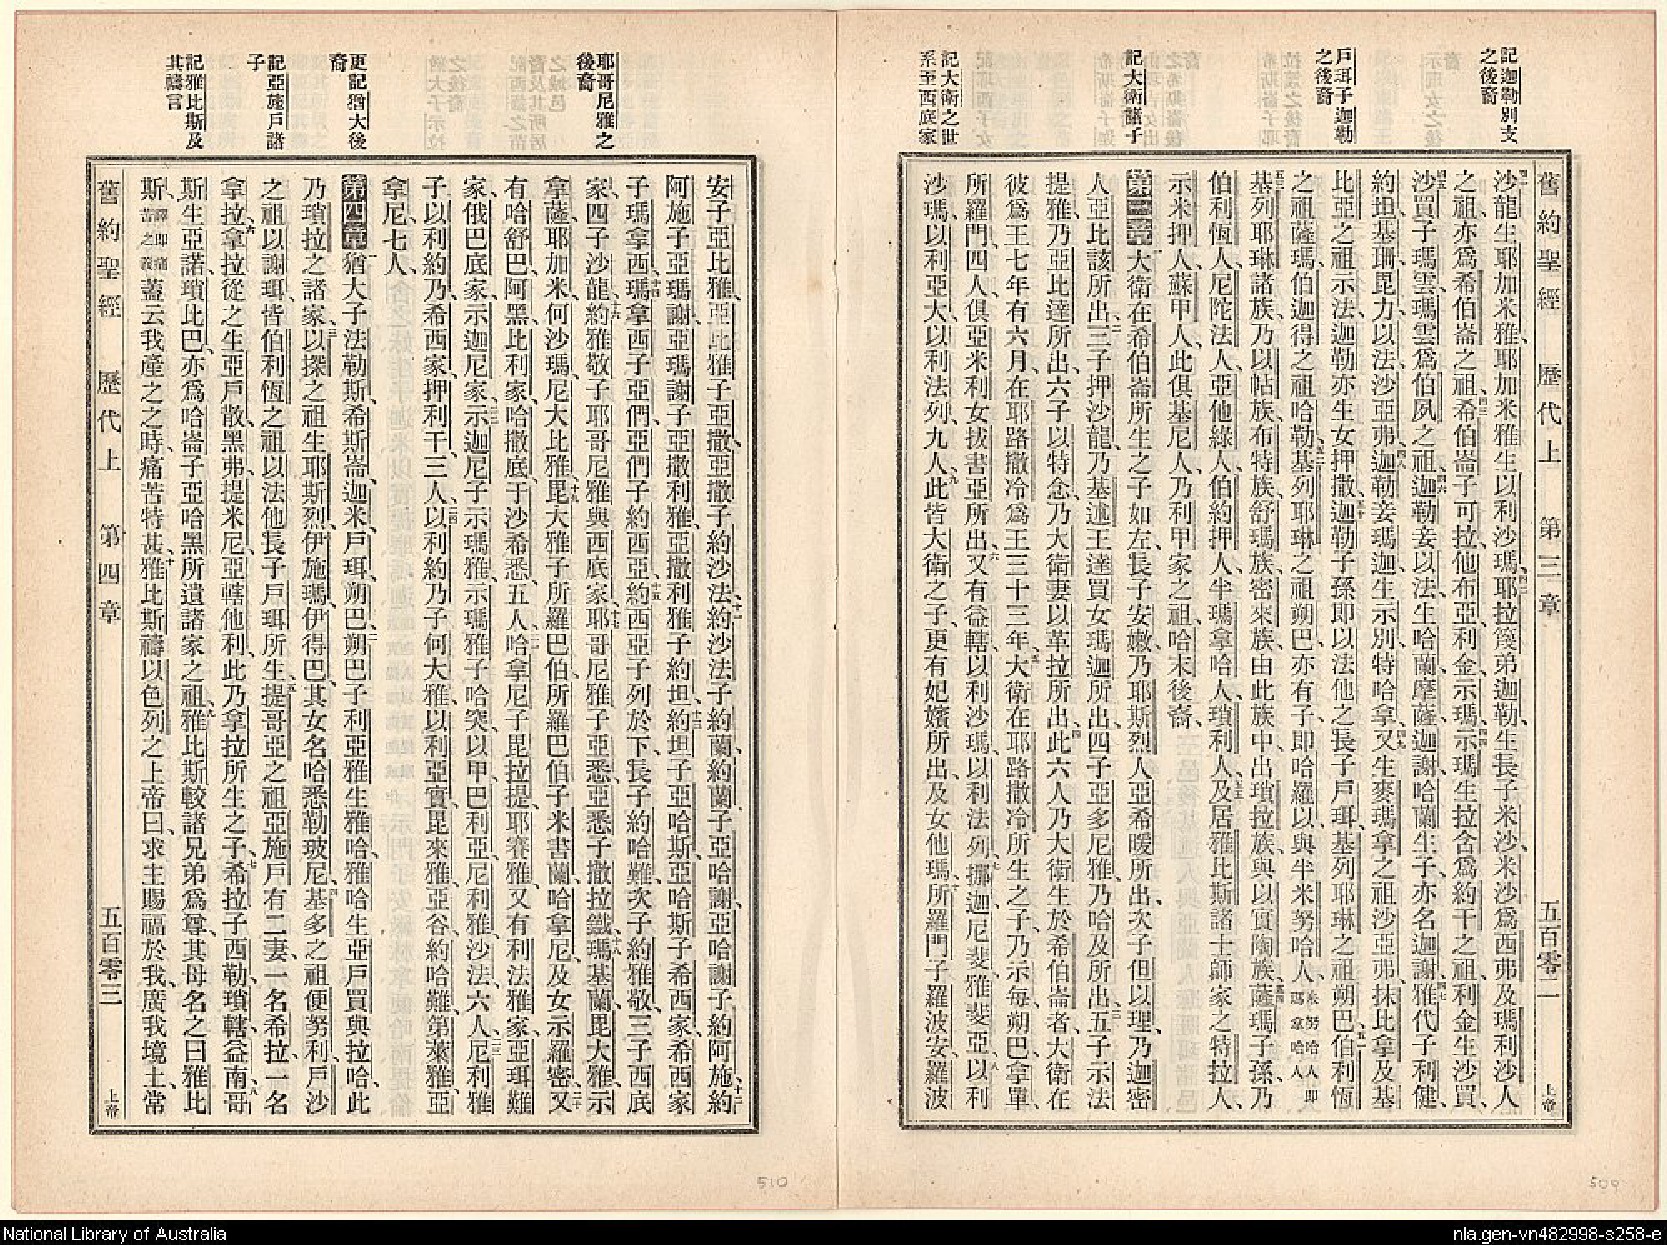 記迦勒別支
之後裔
戶珥子迦勒
之後裔
記大衛諸子
記大衛之世
系至西底家
舊約聖經 歷代上 第三章 五百零二 上帝
沙龍生耶加米雅、耶加米雅生以利沙瑪、耶拉篾弟迦勒、生長子米沙、米沙爲西弗及瑪利沙人
之祖、亦爲希伯崙之祖、希伯崙子可拉、他布亞、利金、示瑪、示瑪生拉含、爲約干之祖、利金生沙買、
沙買子瑪雲、瑪雲爲伯夙之祖、迦勒妾以法、生哈蘭、摩薩、迦謝、哈蘭生子、亦名迦謝、雅代子利健、
約坦、基珊、毘力、以法、沙亞弗、迦勒妾瑪迦、生示別、特哈拿、又生麥瑪拿之祖沙亞弗、抹比拿及基
比亞之祖示法、迦勒亦生女押撒、迦勒子孫、即以法他之長子戶珥、基列耶琳之祖朔巴、伯利恆
之祖薩瑪、伯迦得之祖哈勒、基列耶琳之祖朔巴、亦有子、即哈羅以、與半米努哈人、米努哈人即瑪拿哈人
基列耶琳諸族、乃以帖族、布特族、舒瑪族、密來族、由此族中、出瑣拉族、與以實陶族、薩瑪子孫、乃
伯利恆人、尼陀法人、亞他綠人、伯約押人、半瑪拿哈人、瑣利人、及居雅比斯諸士師家之特拉人、
示米押人、蘇甲人、此俱基尼人、乃利甲家之祖哈末後裔、
第三章 大衛在希伯崙所生之子如左、長子安嫩、乃耶斯烈人亞希暖所出、次子但以理、乃迦密
人亞比該所出、三子押沙龍、乃基述王達買女瑪迦所出、四子亞多尼雅、乃哈及所出、五子示法
提雅、乃亞比達所出、六子以特念、乃大衛妻以革拉所出、此六人、乃大衛生於希伯崙者、大衛在
彼爲王七年有六月、在耶路撒冷爲王三十三年、大衛在耶路撒冷所生之子、乃示每、朔巴、拿單、
所羅門、四人俱亞米利女拔書亞所出、又有益轄、以利沙瑪、以利法列、挪迦、尼斐、雅斐亞、以利
沙瑪、以利亞大、以利法列、九人、此皆大衛之子、更有妃嬪所出、及女他瑪、所羅門子羅波安、羅波
耶哥尼雅之
後裔
更記猶大後
裔
記亞施戶諸
子
記雅比斯及
其禱言
安子亞比雅、亞比雅子亞撒、亞撒子約沙法、約沙法子約蘭、約蘭子亞哈謝、亞哈謝子約阿施、約
阿施子亞瑪謝、亞瑪謝子亞撒利雅、亞撒利雅子約坦、約坦子亞哈斯、亞哈斯子希西家、希西家
子瑪拿西、瑪拿西子亞們、亞們子約西亞、約西亞子列於下、長子約哈難、次子約雅敬、三子西底
家、四子沙龍、約雅敬子耶哥尼雅與西底家、耶哥尼雅子亞悉、亞悉子撒拉鐵、瑪基蘭、毘大雅、示
拿薩、耶加米、何沙瑪、尼大比雅、毘大雅子所羅巴伯、所羅巴伯子米書蘭、哈拿尼、及女示羅密、又
有哈舒巴、阿黑、比利家、哈撒底、于沙希悉、五人、哈拿尼子毘拉提、耶賽雅、又有利法雅家、亞珥難
家、俄巴底家、示迦尼家、示迦尼子示瑪雅、示瑪雅子哈突、以甲、巴利亞、尼利雅、沙法、六人、尼利雅
子以利約乃、希西家、押利干、三人、以利約乃子何大雅、以利亞實、毘來雅、亞谷、約哈難、第萊雅、亞
拿尼、七人、
第四章 猶大子法勒斯、希斯崙、迦米、戶珥、朔巴、朔巴子利亞雅生雅哈、雅哈生亞戶買與拉哈、此
乃瑣拉之諸家、以探之祖生耶斯烈、伊施瑪、伊得巴、其女名哈悉勒玻尼、基多之祖便努利、戶沙
之祖以謝珥、皆伯利恆之祖、以法他長子戶珥所生、提哥亞之祖亞施戶有二妻、一名希拉、一名
拿拉、拿拉從之生亞戶散、黑弗、提米尼、亞轄他利、此乃拿拉所生之子、希拉子西勒、瑣轄、益南、哥
斯生亞諾、瑣比巴、亦爲哈崙子亞哈黑所遺諸家之祖、雅比斯較諸兄弟爲尊、其母名之曰雅比
斯、譯即痛苦之義蓋云我產之之時、痛苦特甚、雅比斯禱以色列之上帝曰、求主賜福於我、廣我境土、常
舊約聖經 歷代上 第四章 五百零三 上帝
510
509
National Library of Australia
nla.gen-vn482998-s258-e